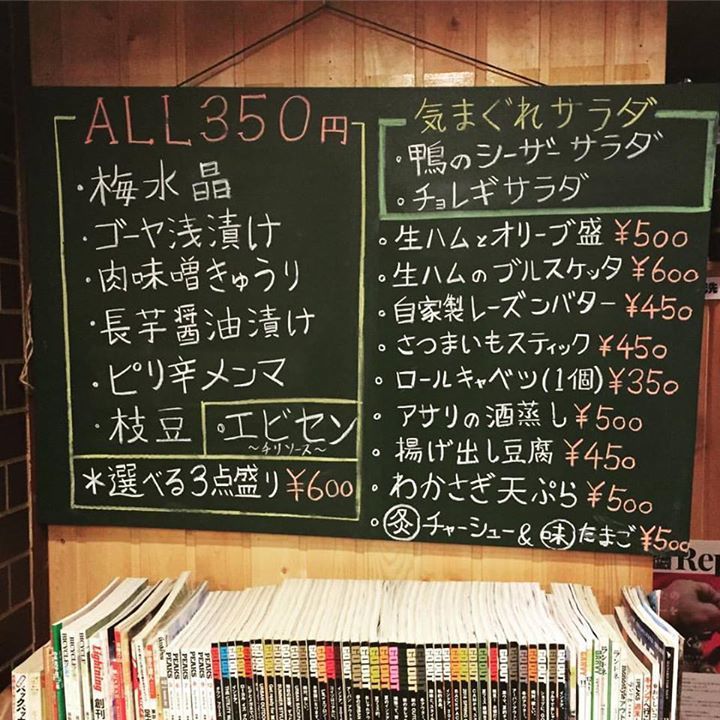 ALL 350円
・梅水晶
・ゴーヤ浅漬け
・肉味噌きゅうり
・長芋醤油漬け
・ピリ辛メンマ
・枝豆
・エビセン
～チリソース～
*選べる3点盛り ¥600
気まぐれサラダ
・鴨のシーザーサラダ
・チョレギサラダ
・生ハムとオリーブ盛 ¥500
・生ハムのブルスケッタ ¥600
・自家製レーズンバター ¥450
・さつまいもスティック ¥450
・ロールキャベツ(1個) ¥350
・アサリの酒蒸し ¥500
・揚げ出し豆腐 ¥450
・わかさぎ天ぷら ¥500
・炙チャーシュー&味たまご ¥500
Rep
Lightning
創刊
PEAKS
PEAKS
PEAKS
PEAKS
GO OUT
GO OUT
GO OUT
GO OUT
GO OUT
GO OUT